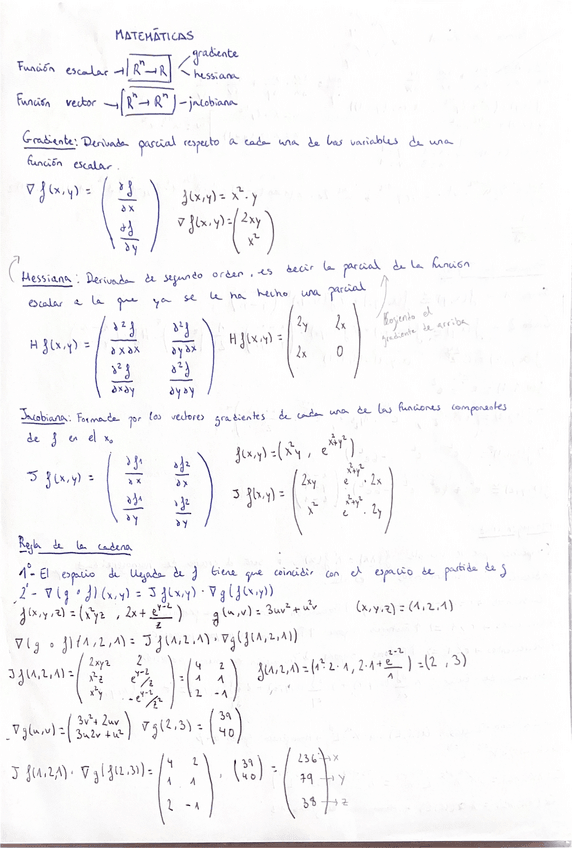 MATEMÁTICAS
Función escalar → [Rⁿ → R] < gradiente
hessiana
Función vector → [Rⁿ → Rⁿ] - jacobiana
Gradiente: Derivada parcial respecto a cada una de las variables de una
función escalar.
∇f(x,y) = (∂f/∂x ; ∂f/∂y)
f(x,y) = x²·y
∇f(x,y) = (2xy ; x²)
Hessiana: Derivada de segundo orden, es decir la parcial de la función
escalar a la que ya se le ha hecho una parcial
Hf(x,y) = (∂²f/∂x∂x  ∂²f/∂y∂x ; ∂²f/∂x∂y  ∂²f/∂y∂y)
Hf(x,y) = (2y  2x ; 2x  0)
Cogiendo el
gradiente de arriba
Jacobiana: Formada por los vectores gradientes de cada una de las funciones componentes
de f en el x₀
J f(x,y) = (∂f1/∂x  ∂f2/∂x ; ∂f1/∂y  ∂f2/∂y)
f(x,y) = (x²y , e^(x²+y²))
J f(x,y) = (2xy  e^(x²+y²)·2x ; x²  e^(x²+y²)·2y)
Regla de la cadena
1º- El espacio de llegada de f tiene que coincidir con el espacio de partida de g
2º- ∇(g∘f)(x,y) = Jf(x,y)·∇g(f(x,y))
f(x,y,z) = (x²yz , 2x + e^(y-2)/z)   g(u,v) = 3uv² + u²v   (x,y,z) = (1,2,1)
∇(g∘f)(1,2,1) = Jf(1,2,1)·∇g(f(1,2,1))
Jf(1,2,1) = (2xyz  2 ; x²z  e^(y-2)/z ; x²y  -e^(y-2)/z²) = (4  2 ; 1  1 ; 2  -1)   f(1,2,1) = (1²·2·1, 2·1 + e^(2-2)/1) = (2, 3)
∇g(u,v) = (3v²+2uv ; 3u2v+u²)   ∇g(2,3) = (39 ; 40)
Jf(1,2,1)·∇g(f(2,3)) = (4  2 ; 1  1 ; 2  -1) · (39 ; 40) = (236 → x ; 79 → y ; 38 → z)